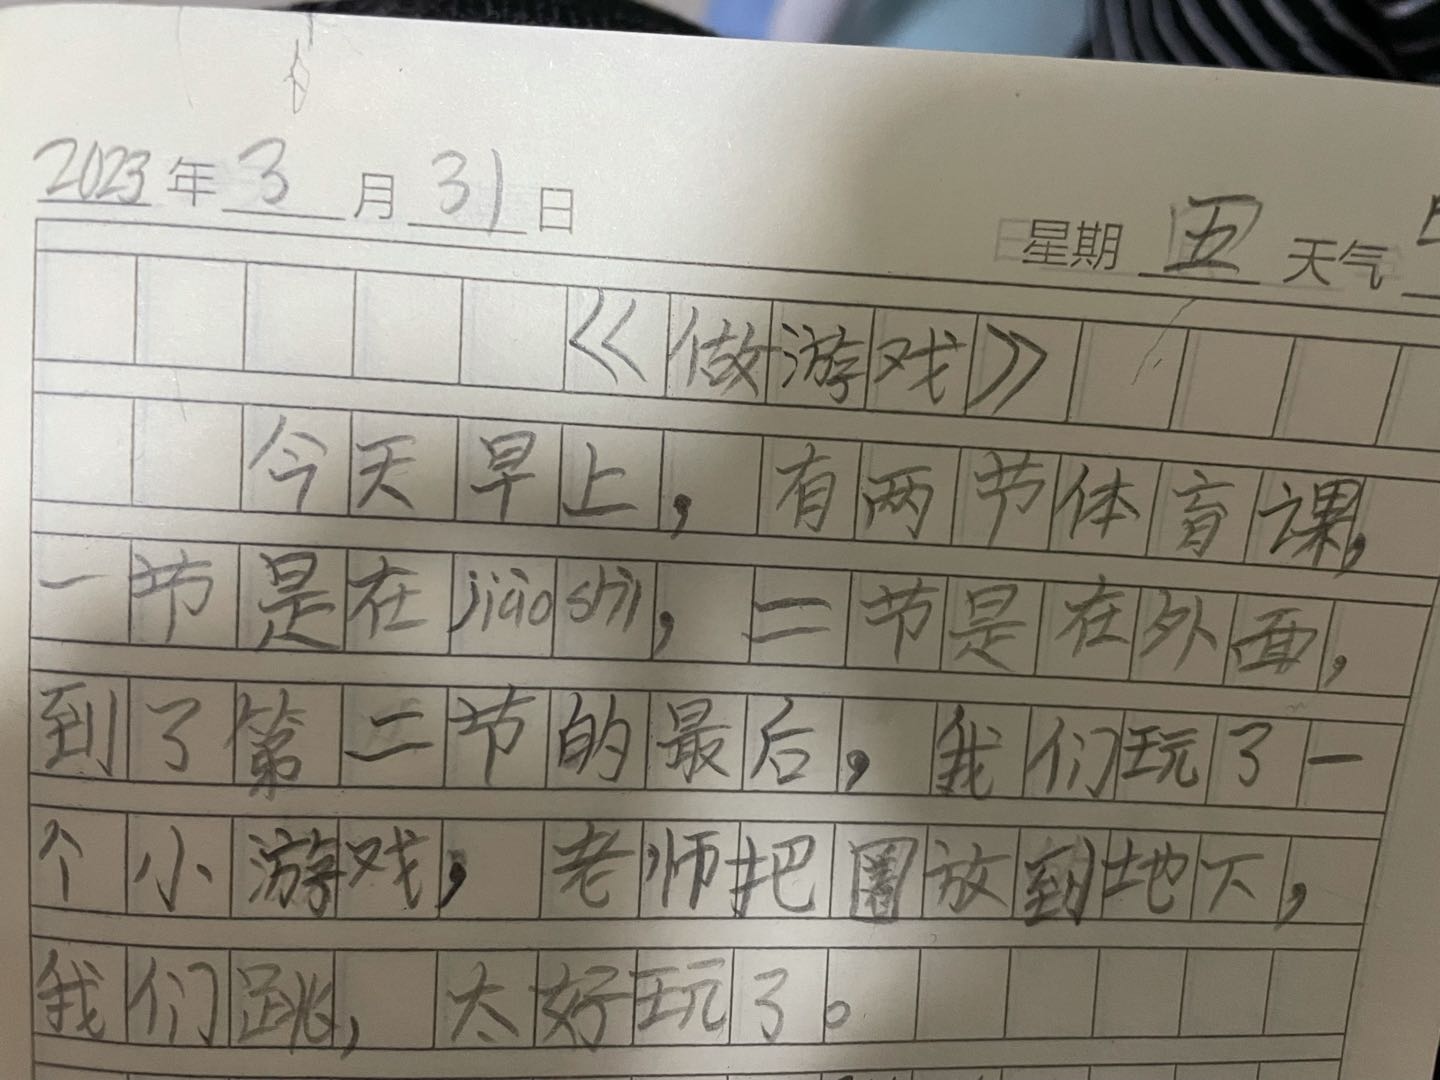 2023年3月31日 星期五 天气
《做游戏》
今天早上，有两节体育课，
一节是在jiào shì，二节是在外面，
到了第二节的最后，我们玩了一
个小游戏，老师把圈放到地下，
我们跳，太好玩了。